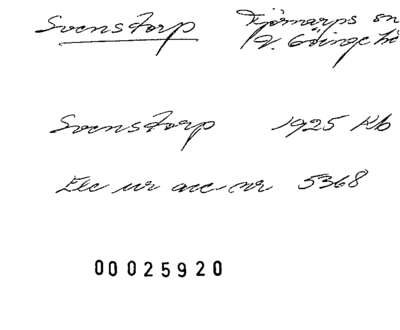 Svenstorp Fjärnarps sn
V. Göinge hd
Svenstorp 1925 Kb
Exc ur acc. nr 5368
00025920